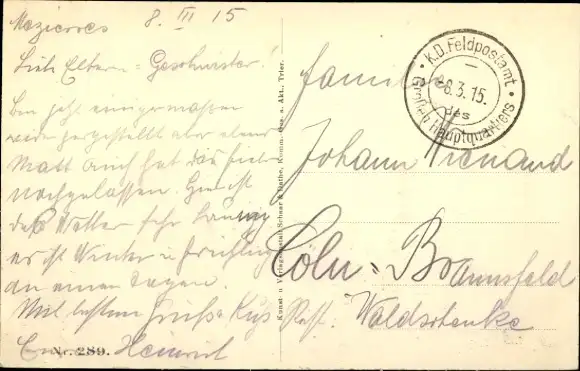 Mezieres 8. III 15
Liebe Eltern u. Geschwister!
Bin jetzt einigermaßen
wieder hergestellt aber
Matt auch hat das Fieber
nachgelassen.
das Wetter sehr launig
es ist Winter u Frühling
an einem Tage.
Mit besten Grüße u Kuß
Heinrich
Nr. 289.
Kunst- u. Verlagsanstalt Schaar & Dathe, Komm.-Ges. a. Akt., Trier.
K.D. Feldpostamt
8.3.15.
des
Großen Hauptquartiers
Familie
Johann Wienand
Cöln = Braunsfeld
Waldschenke